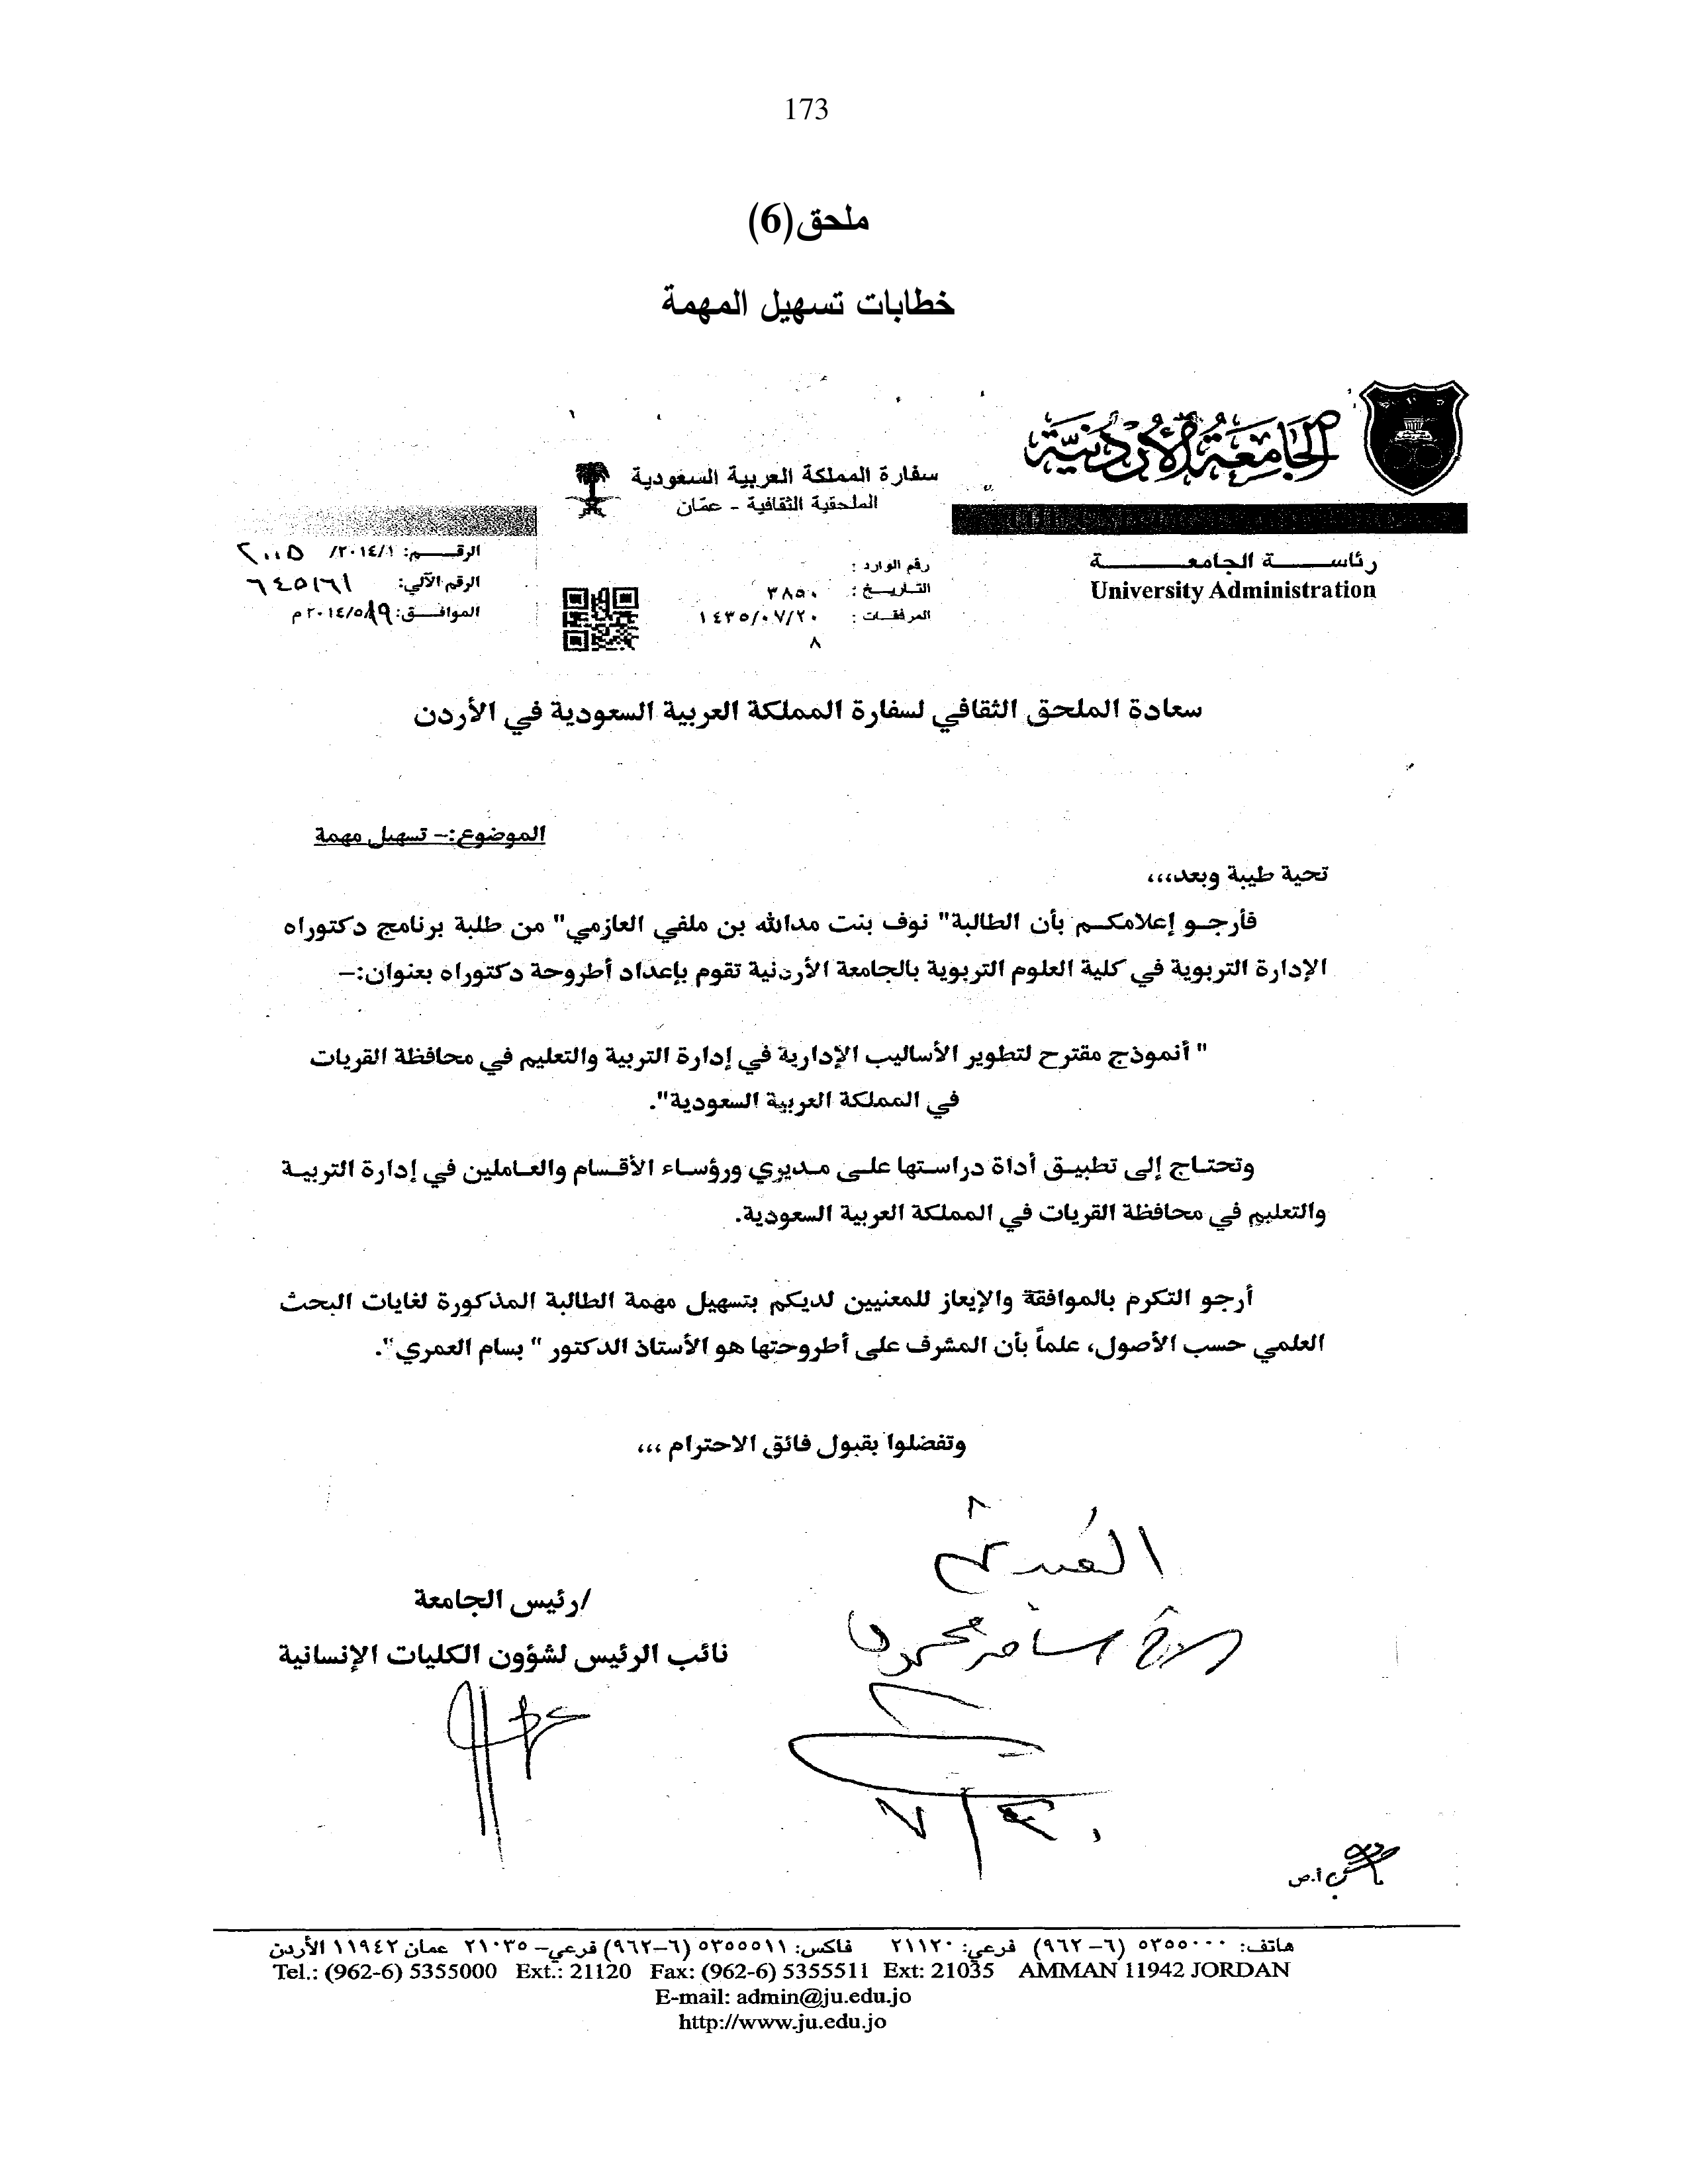 173
ملحق(6)
خطابات تسهيل المهمة
الجامعة الأردنية
رئاســـــة الجامعـــــــة
University Administration
سفارة المملكة العربية السعودية
الملحقية الثقافية - عمّان
رقم الوارد :
التاريـــخ : ٣٨٥٠
المرفقـات : ١٤٣٥/٠٧/٢٠
٨
الرقــــم: ٢٠١٤/١/ ٢٠٠٥
الرقم الآلي: ٦٤٥١٦١
الموافــق: ٢٠١٤/٥/١٩ م
سعادة الملحق الثقافي لسفارة المملكة العربية السعودية في الأردن
الموضوع:– تسهيل مهمة
تحية طيبة وبعد،،،
فأرجـو إعلامكـم بأن الطالبة" نوف بنت مدالله بن ملفي العازمي" من طلبة برنامج دكتوراه
الإدارة التربوية في كلية العلوم التربوية بالجامعة الأردنية تقوم بإعداد أطروحة دكتوراه بعنوان:–
" أنموذج مقترح لتطوير الأساليب الإدارية في إدارة التربية والتعليم في محافظة القريات
في المملكة العربية السعودية".
وتحتـاج إلى تطبيـق أداة دراسـتها علـى مـديري ورؤسـاء الأقـسام والعـاملين في إدارة التربيـة
والتعليم في محافظة القريات في المملكة العربية السعودية.
أرجو التكرم بالموافقة والإيعاز للمعنيين لديكم بتسهيل مهمة الطالبة المذكورة لغايات البحث
العلمي حسب الأصول، علماً بأن المشرف على أطروحتها هو الأستاذ الدكتور " بسام العمري".
وتفضلوا بقبول فائق الاحترام ،،،
/رئيس الجامعة
نائب الرئيس لشؤون الكليات الإنسانية
أ.ص
هاتف: ٥٣٥٥٠٠٠ (٦–٩٦٢) فرعي: ٢١١٢٠ فاكس: ٥٣٥٥٥١١ (٦–٩٦٢) فرعي– ٢١٠٣٥ عمان ١١٩٤٢ الأردن
Tel.: (962-6) 5355000 Ext.: 21120 Fax: (962-6) 5355511 Ext: 21035 AMMAN 11942 JORDAN
E-mail: admin@ju.edu.jo
http://www.ju.edu.jo